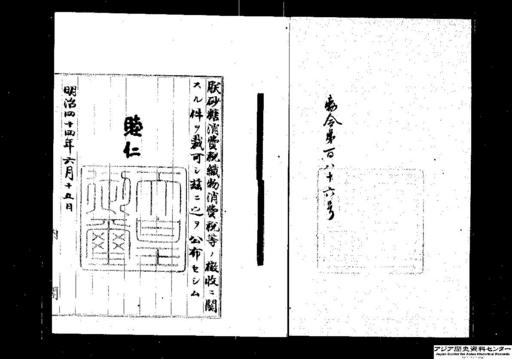 勅令第百八十六号
朕砂糖消費税織物消費税等ノ徴收ニ関
スル件ヲ裁可シ茲ニ之ヲ公布セシム
睦仁
天皇御璽
明治四十四年六月十五日
内閣
アジア歴史資料センター
Japan Center for Asian Historical Records